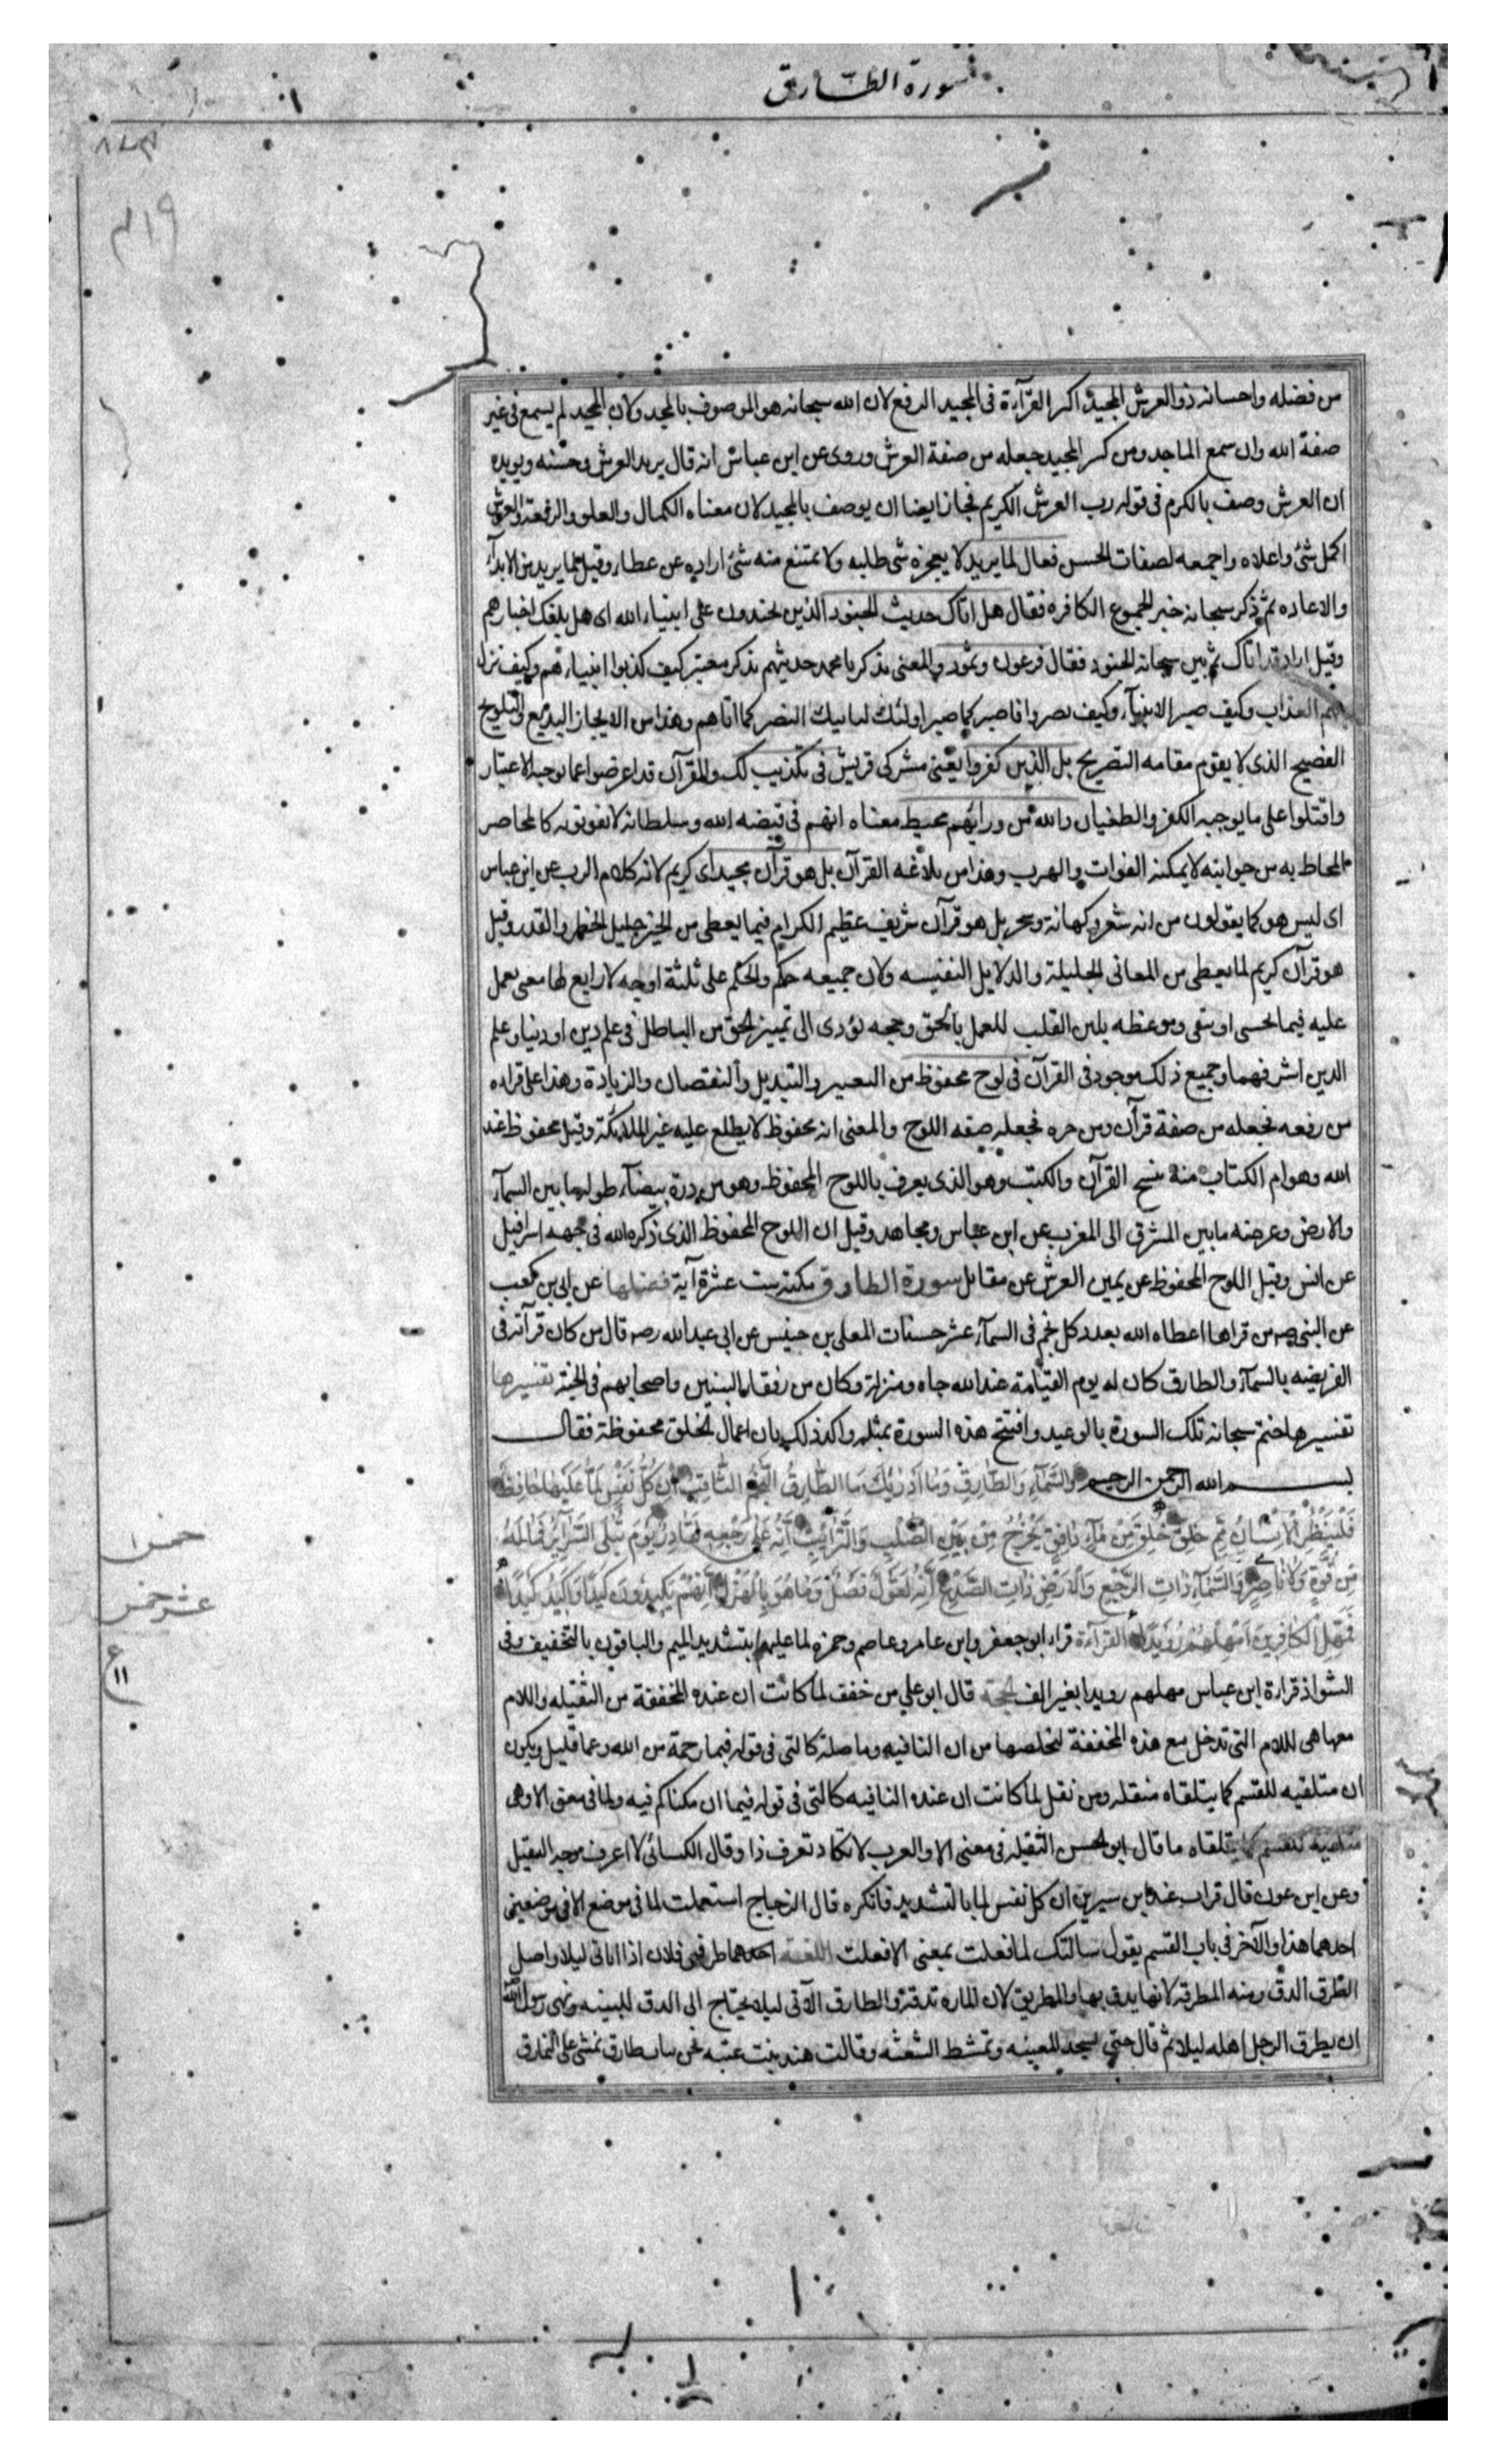 سورة الطارق
من فضله واحسانه ذو العرش المجيد اكثر القرآءة فى المجيد الرفع لان الله سبحانه هو الموصوف بالمجد ولان المجيد لم يسمع فى غير
صفة الله وان سمع الماجد ومن كسر المجيد جعله من صفة العرش وروى عن ابن عباس انه قال يريد العرش وحسنه ويويده
ان العرش وصف بالكرم فى قوله رب العرش الكريم فجاز ايضا ان يوصف بالمجيد لان معناه الكمال والعلو والرفعة والعرش
اكمل شئ واعلاه واجمعه لصفات الحسن فعال لما يريد لا يعجزه شى طلبه ولا يمتنع منه شئ اراده عن عطاء وقيل لما يريد من الابدآء
والاعاده ثم ذكر سبحانه خبر الجموع الكافره فقال هل اتاك حديث الجنود الذين تجندون على انبياء الله اى هل بلغك اخبارهم
وقيل اراد قد اتاك ثم بين سبحانه الجنود فقال فرعون وثمود والمعنى تذكر يا محمد حديثهم تذكر معتبر كيف كذبوا انبيائهم وكيف نزل
بهم العذاب وكيف صبر الانبيآء وكيف نصروا فاصبر كما صبر اولئك لياتيك النصر كما اتاهم وهذا من الايجاز البديع والتلويح
الفصيح الذى لا يقوم مقامه التصريح بل الذين كفروا يعنى مشركى قريش فى تكذيب لك والقرآن قد اعرضوا عما يوجبه الاعتبار
واقبلوا على ما يوجبه الكفر والطغيان والله من ورائهم محيط معناه انهم فى قبضه الله وسلطانه لا يفوتونه كالمحاصر
المحاط به من جوانبه لا يمكنه الفوات والهرب وهذا من بلاغه القرآن بل هو قرآن مجيد اى كريم لانه كلام الرب عن ابن عباس
اى ليس هو كما يقولون من انه شعر وكهانة وسحر بل هو قرآن شريف عظيم الكرام فيما يعطى من الخير جليل الخطر والقدر وقيل
هو قرآن كريم لما يعطى من المعانى الجليلة والدلايل النفيسه ولان جميعه حكم والحكم على ثلثة اوجه لا رابع لها معنى يعمل
عليه فيما يخشى او يتقى وموعظه يلين القلب للعمل بالحق وحجه تؤدى الى تمييز الحق من الباطل فى علم دين او دنيا وعلم
الدين اشرفهما وجميع ذلك موجود فى القرآن فى لوح محفوظ من التغيير والتبديل والنقصان والزيادة وهذا على قراءه
من رفعه فجعله من صفة قرآن ومن جره فجعله صفه اللوح والمعنى انه محفوظ لا يطلع عليه غير الملائكة وقيل محفوظ عند
الله وهو ام الكتاب منه نسخ القرآن والكتب وهو الذى يعرف باللوح المحفوظ وهو من درة بيضآء طولها ما بين السمآء
والارض وعرضه ما بين المشرق الى المغرب عن ابن عباس ومجاهد وقيل ان اللوح المحفوظ الذى ذكره الله فى جبهه اسرافيل
عن انس وقيل اللوح المحفوظ عن يمين العرش عن مقاتل سورة الطارق مكية ست عشرة آية فضلها عن ابى بن كعب
عن النبى ص من قراها اعطاه الله بعدد كل نجم فى السمآء عشر حسنات المعلى بن خنيس عن ابى عبد الله ره قال من كان قرآته فى
الفريضه بالسمآء والطارق كان له يوم القيامة عند الله جاه ومنزلة وكان من رفقاء النبيين واصحابهم فى الجنة تفسيرها
تفسيرها ختم سبحانه تلك السورة بالوعيد وافتتح هذه السورة بمثله واكد ذلك بان اعمال الخلق محفوظة فقال
بسم الله الرحمن الرحيم وَالسَّمَآءِ وَالطَّارِقِ وَمَا اَدْرٰيكَ مَا الطَّارِقُ النَّجْمُ الثَّاقِبُ اِنْ كُلُّ نَفْسٍ لَمَّا عَلَيْهَا حَافِظٌ
فَلْيَنْظُرِ الْاِنْسَانُ مِمَّ خُلِقَ خُلِقَ مِنْ مَآءٍ دَافِقٍ يَخْرُجُ مِنْ بَيْنِ الصُّلْبِ وَالتَّرَآئِبِ اِنَّهُ عَلٰى رَجْعِهِ لَقَادِرٌ يَوْمَ تُبْلَى السَّرَآئِرُ فَمَا لَهُ
مِنْ قُوَّةٍ وَلَا نَاصِرٍ وَالسَّمَآءِ ذَاتِ الرَّجْعِ وَالْاَرْضِ ذَاتِ الصَّدْعِ اِنَّهُ لَقَوْلٌ فَصْلٌ وَمَا هُوَ بِالْهَزْلِ اِنَّهُمْ يَكِيدُونَ كَيْدًا وَاَكِيدُ كَيْدًا
فَمَهِّلِ الْكَافِرِينَ اَمْهِلْهُمْ رُوَيْدًا القرآءة قراء ابو جعفر وابن عامر وعاصم وحمزه لما عليها بتشديد الميم والباقون بالتخفيف وفى
الشواذ قرارة ابن عباس مهلهم رويدا بغير الف الحجة قال ابو على من خفف لما كانت ان عنده المخففة من الثقيله واللام
معها هى اللام التى تدخل مع هذه المخففة لتخلصها من ان النافيه وما صلة كالتى فى قوله فبما رحمة من الله وعما قليل ويكون
ان متلقيه للقسم كما يتلقاه مثقله ومن ثقل لما كانت ان عنده النافيه كالتى فى قوله فيما ان مكناكم فيه ولما فى معنى الا وهى
متلقيه للقسم كما يتلقاه ما قال ابو الحسن الثقيله فى معنى الا والعرب لا تكاد تعرف ذا وقال الكسائى لا اعرف وجه التثقيل
وعن ابن عون قال قرات عند ابن سيرين ان كل نفس لما بالتشديد فانكره قال الزجاج استعملت لما فى موضع الا فى موضعين
احدهما هذا والآخر فى باب القسم يقول سالتك لما فعلت بمعنى الا فعلت اللغة طرقنى فلان اذا اتانى ليلا واصل
الطرق الدق ومنه المطرقة لانها يدق بها والطريق لان الماره تدقه والطارق الآتى ليلا يحتاج الى الدق للتنبيه ونهى رسول الله
ان يطرق الرجل اهله ليلا ثم قال حتى تستحد المغيبه وتمتشط الشعثه وقالت هند بنت عتبه نحن بنات طارق نمشى على النمارق